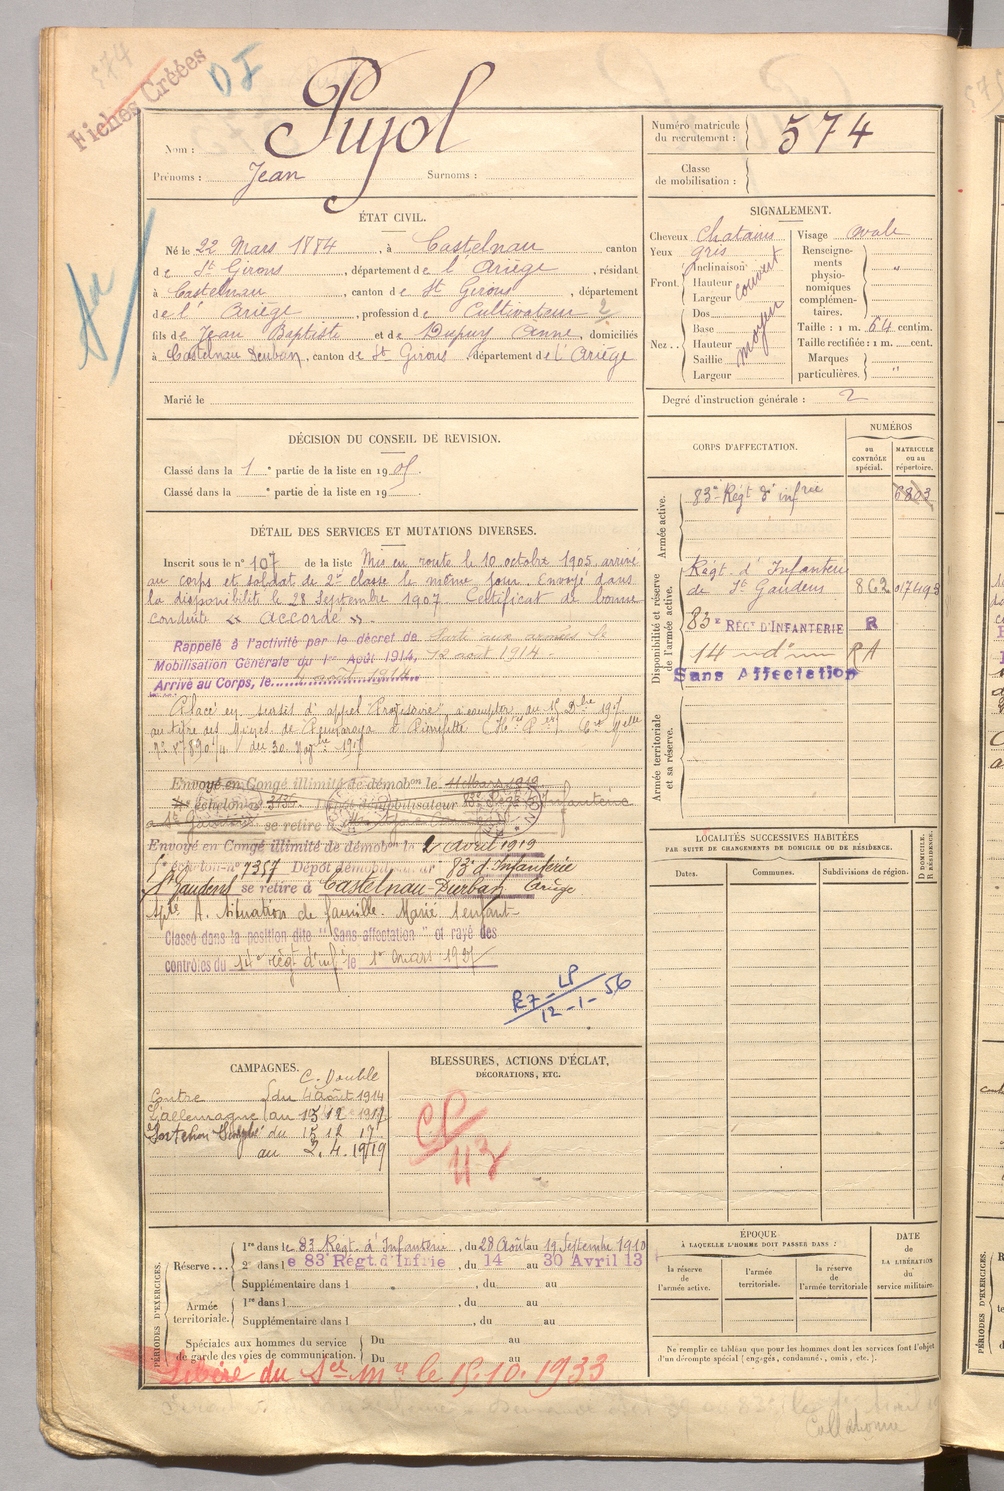 574
Fiches Créées
DI
Nom : Pujol
Prénoms : Jean Surnoms :
Numéro matricule du recrutement : 574
Classe de mobilisation :
ÉTAT CIVIL.
Né le 22 Mars 1884, à Castelnau canton
de St Girons, département de l'Ariège, résidant
à Castelnau, canton de St Girons, département
de l'Ariège, profession de Cultivateur 2
fils de Jean Baptiste et de Dupuy Anne, domiciliés
à Castelnau Durban, canton de St Girons, département de l'Ariège
Marié le
SIGNALEMENT.
Cheveux Chatains
Yeux gris
Front. Inclinaison
Hauteur
Largeur
couvert
Nez.. Dos
Base
Hauteur
Saillie
Largeur
moyen
Visage ovale
Renseignements physionomiques complémentaires. "
Taille : 1 m. 64 centim.
Taille rectifiée : 1 m. cent.
Marques particulières. "
Degré d'instruction générale : 2
DÉCISION DU CONSEIL DE REVISION.
Classé dans la 1e partie de la liste en 1905.
Classé dans la e partie de la liste en 19
DÉTAIL DES SERVICES ET MUTATIONS DIVERSES.
Inscrit sous le n° 107 de la liste Mis en route le 10 octobre 1905 arrivé
au corps et soldat de 2e classe le même jour. Envoyé dans
la disponibilité le 28 Septembre 1907. Certificat de bonne
conduite « Accordé ».
Rappelé à l'activité par le décret de Parti aux armées le
Mobilisation Générale du 1er Août 1914. 12 aout 1914.
Arrivé au Corps, le 4 août 1914
Placé en sursis d'appel à compter du 15 Dbre 1917
au titre des Mines de
du 30 Nov
Envoyé en Congé illimité de démobon le 11 Mars 1919
se retire à
Envoyé en Congé illimité de démobon le 2 avril 1919
5e échelon n° 7357 Dépôt démob 83e d'Infanterie
St Gaudens se retire à Castelnau-Durban Ariège
A. Situation de famille. Marié 1 enfant
Classé dans la position dite "Sans affectation" et rayé des
contrôles du 14e régt d'inf le 1er mars 1927
R7-LP
12-1-56
CORPS D'AFFECTATION.
NUMÉROS
au CONTRÔLE spécial.
MATRICULE ou au répertoire.
Armée active.
83e Régt d'infrie 6803
Disponibilité et réserve de l'armée active.
Régt d'Infanterie
de St Gaudens 862 017493
83e RÉGT D'INFANTERIE R
14 — d° — RA
Sans Affectation
Armée territoriale et sa réserve.
LOCALITÉS SUCCESSIVES HABITÉES
PAR SUITE DE CHANGEMENTS DE DOMICILE OU DE RÉSIDENCE.
Dates.
Communes.
Subdivisions de région.
D DOMICILE. R RÉSIDENCE.
CAMPAGNES.
C. Double
Contre du 4 août 1914
L'allemagne au 15 12 1917
du 15 12 17
au 2.4.1919
BLESSURES, ACTIONS D'ÉCLAT,
DÉCORATIONS, ETC.
PÉRIODES D'EXERCICES.
Réserve... 1re dans le 83 Régt d'Infanterie, du 28 Août au 19 Septembre 1910
2e dans le 83e Régt.d'Infrie, du 14 au 30 Avril 13
Supplémentaire dans l , du au
Armée territoriale. 1re dans l , du au
Supplémentaire dans l , du au
Spéciales aux hommes du service de garde des voies de communication. Du au
Du au
Libéré du Sce Mre le 15.10.1933
ÉPOQUE
À LAQUELLE L'HOMME DOIT PASSER DANS :
la réserve de l'armée active.
l'armée territoriale.
la réserve de l'armée territoriale
DATE de LA LIBÉRATION du service militaire.
Ne remplir ce tableau que pour les hommes dont les services font l'objet
d'un décompte spécial (engagés, condamnés, omis, etc.).